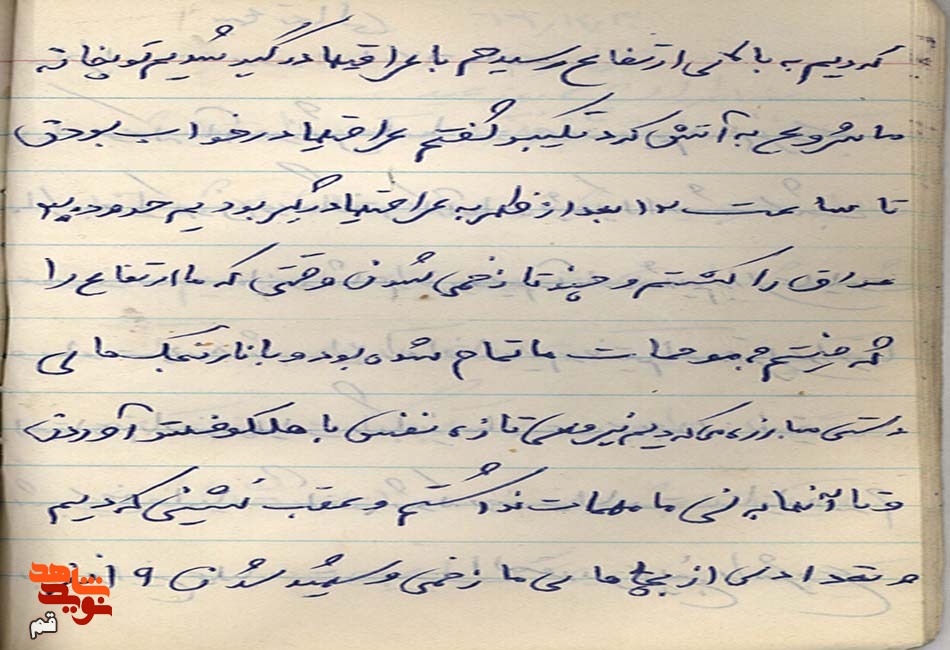 کردیم به بالای ارتفاع رسیدیم با عراقیها درگیر شدیم توپخانه
ما شروع به آتش کرد گفتم عراقیها در خواب بودن
تا ساعت ۱۲ بعد از ظهر به عراقیها درگیر بودیم حدود ۳۰
عراقی را کشتیم و چند تا زخمی شدن وقتی که ما ارتفاع را
گرفتیم مهومات ما تمام شده بود و با نارنجکهای
دستی مبارزه می کردیم نیروهای تازه نفس با هلکوفتر آوردن
و با آنها ما مهمات نداشتیم و عقب نشینی کردیم
و تعدادی از بچه های ما زخمی و شهید شدن ۹
شاهد
نوید
قم